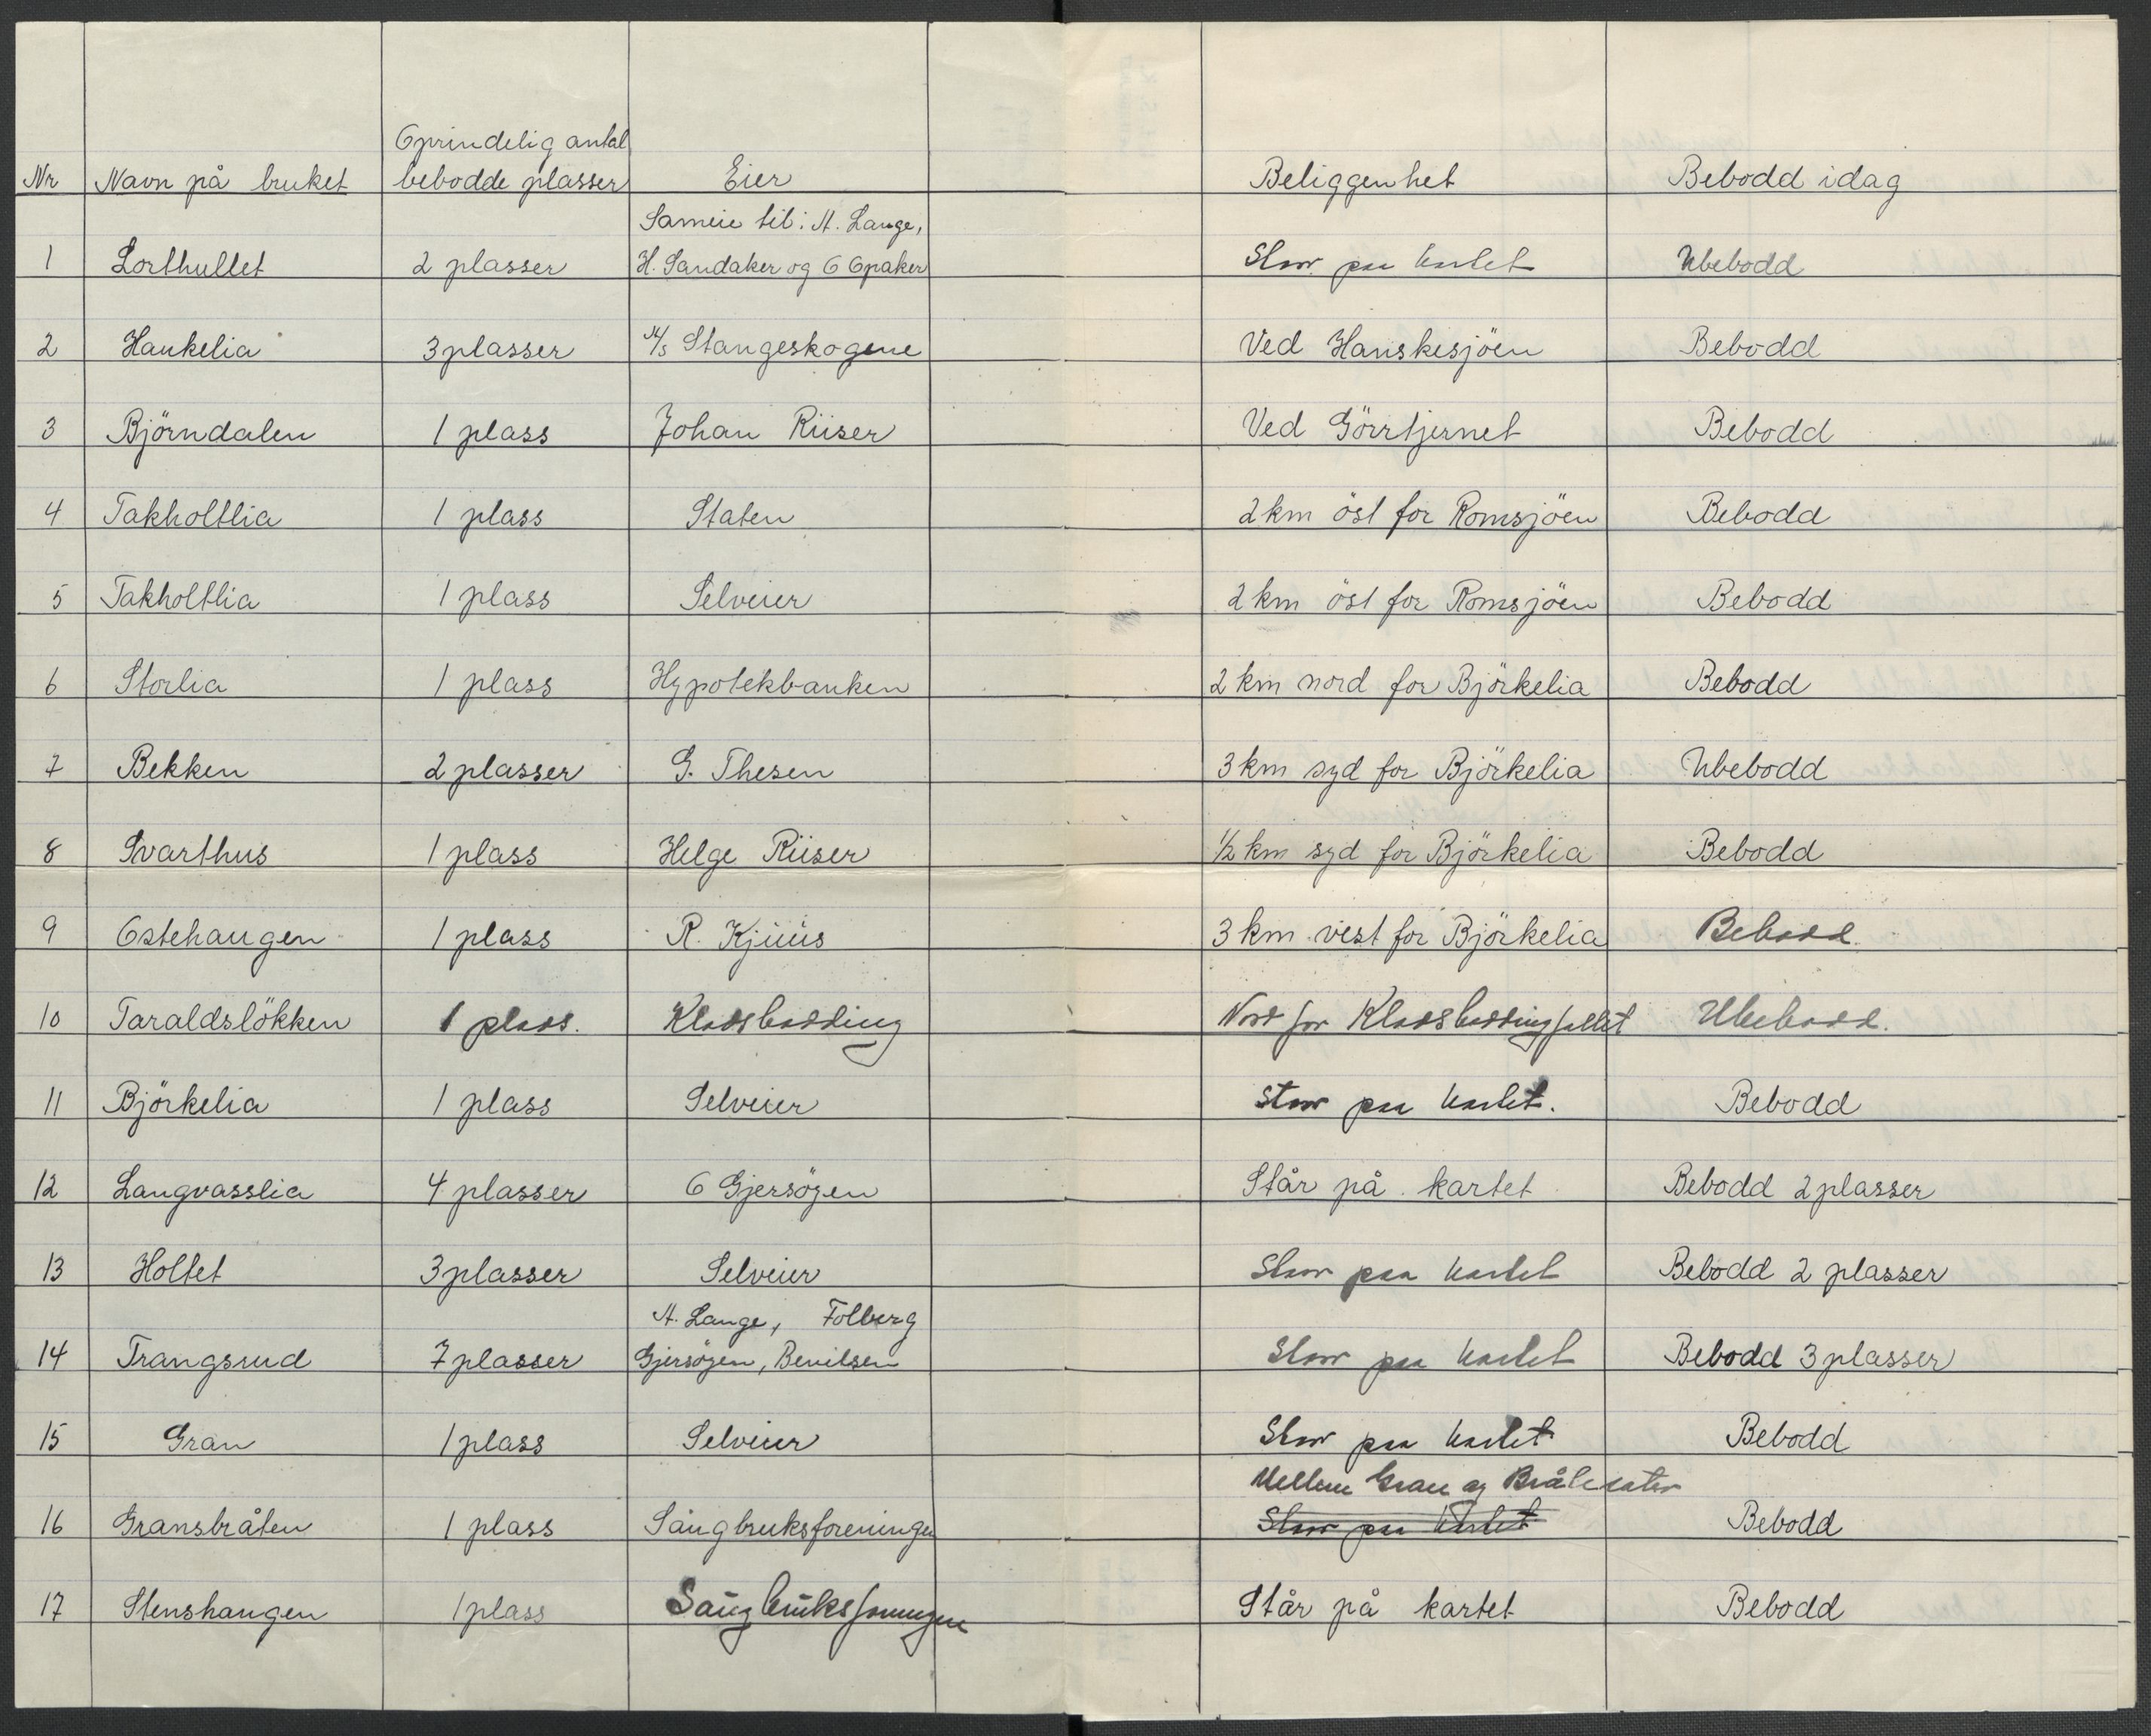 Oprindelig antal
Nr Navn på bruket bebodde plasser Eier Beliggenhet Bebodd idag
Sameie til: A. Lange,
1 Lorthullet 2 plasser H. Sandaker og O Opaker Staar paa kartet Ubebodd
2 Haukelia 3 plasser A/S Stangeskogene Ved Hanskesjöen Bebodd
3 Björndalen 1 plass Johan Riiser Ved Görrtjernet Bebodd
4 Takholtlia 1 plass Staten 2 km öst for Romsjöen Bebodd
5 Takholtlia 1 plass Selveier 2 km öst for Romsjöen Bebodd
6 Storlia 1 plass Hypotekbanken 2 km nord for Björkelia Bebodd
7 Bekken 2 plasser G. Thesen 3 km syd for Björkelia Ubebodd
8 Svarthus 1 plass Helge Riiser 1/2 km syd for Björkelia Bebodd
9 Ostehaugen 1 plass R. Kjuus 3 km vest for Björkelia Bebodd.
10 Taraldslökken 1 plass. Kladsbødding Nord for Ubebodd.
11 Björkelia 1 plass Selveier Staar paa kartet. Bebodd
12 Langvasslia 4 plasser O Gjersöyen Står på kartet Bebodd 2 plasser
13 Holtet 3 plasser Selveier Staar paa kartet Bebodd 2 plasser
A. Lange, Folberg
14 Trangsrud 7 plasser Gjersöyen, Bernilsen Staar paa kartet Bebodd 3 plasser
15 Gran 1 plass Selveier Staar paa kartet Bebodd
Mellem Gran og Bråtesater
16 Gransbråten 1 plass Saugbruksforeningen Staar paa kartet Bebodd
17 Stenshaugen 1 plass Saugbruksforeningen Står på kartet Bebodd